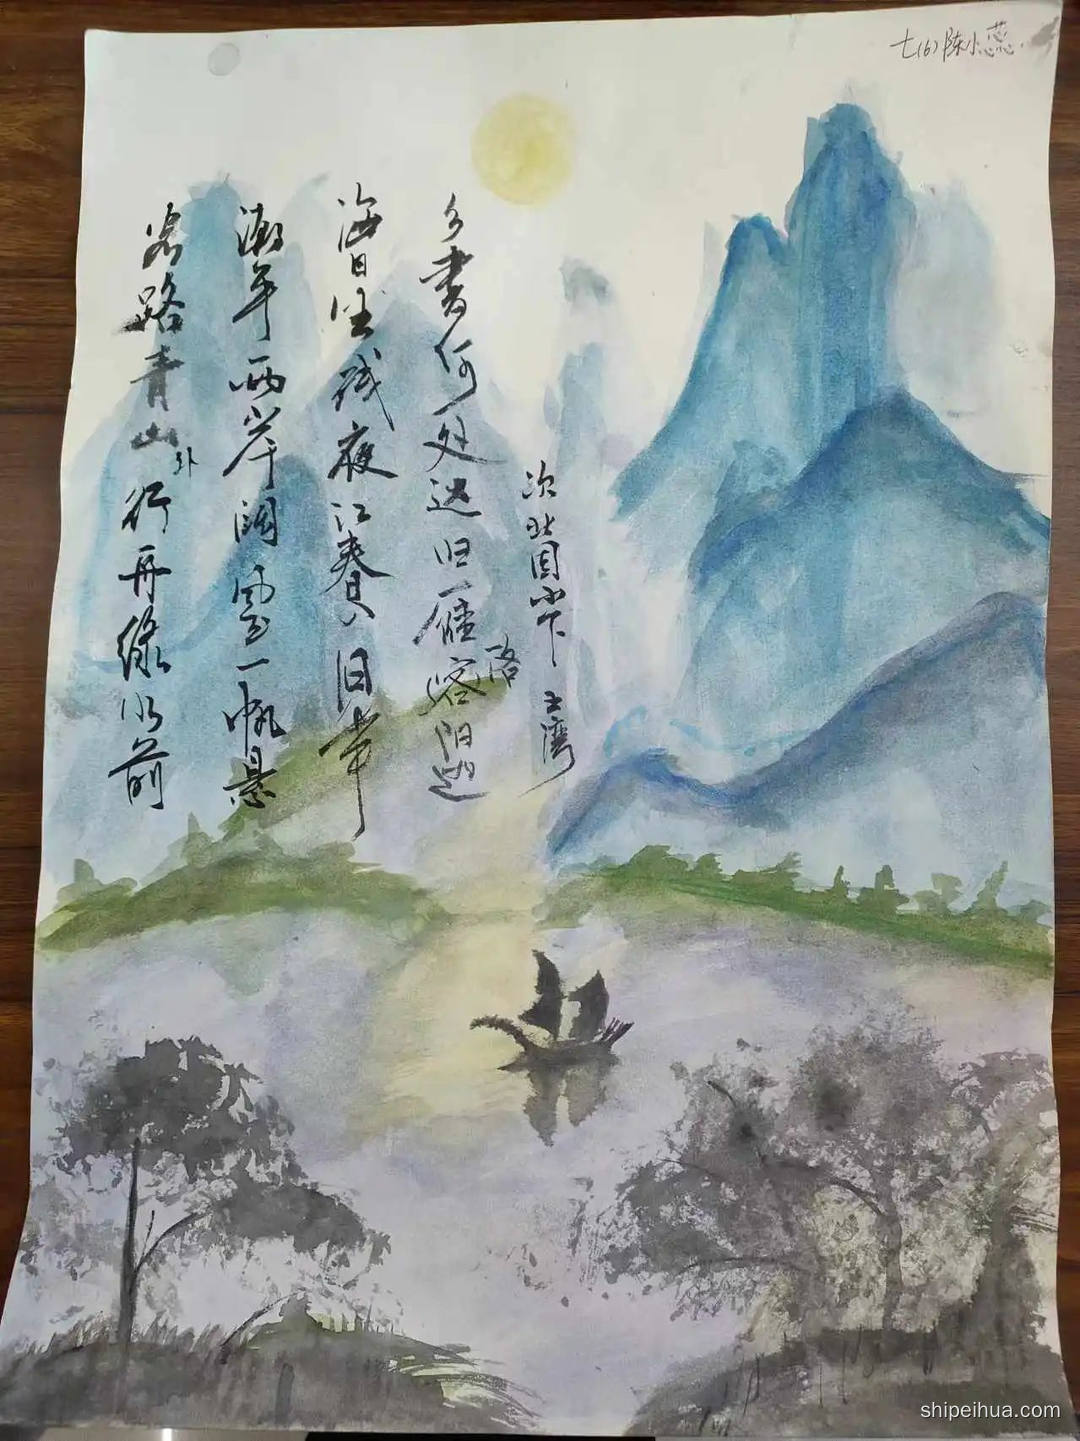 七(6)陈小蕊
客路青山外行舟绿水前
潮平两岸阔风正一帆悬
海日生残夜江春入旧年
乡書何处达归雁洛阳边
次北固山下 王湾
shipeihua.com